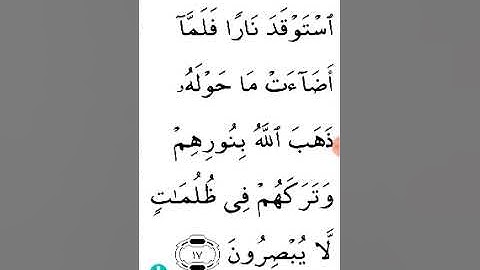 ٱسۡتَوۡقَدَ نَارٗا فَلَمَّآ
أَضَآءَتۡ مَا حَوۡلَهُۥ
ذَهَبَ ٱللَّهُ بِنُورِهِمۡ
وَتَرَكَهُمۡ فِي ظُلُمَٰتٖ
لَّا يُبۡصِرُونَ ١٧